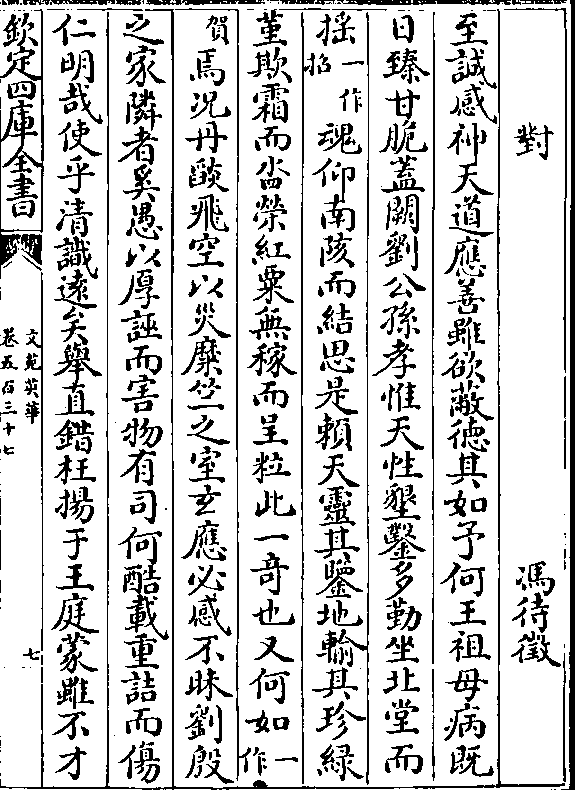 對　馮待徵
至誠感神天道應善雖欲蔽德其如予何王祖母病既
日臻甘脆蓋闕劉公孫孝惟天性墾鑿多勤坐北堂而
搖一作招魂仰南陔而結思是賴天靈其鑒地輸其珍綠
堇欺霜而沓榮紅粟無稼而呈粒此一竒也又何如一作
賀焉況丹燄飛空以災糜竺之室玄應必感不昧劉殷
之家隣者奚愚以厚誣而害物有司何酷載重詰而傷
仁明哉使乎清識逺矣舉直錯枉揚于王庭蒙雖不才
欽定四庫全書
文苑英華
卷五百三十七
七